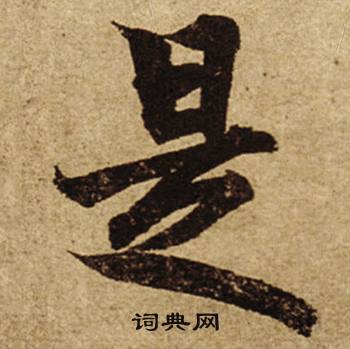 是
词典网